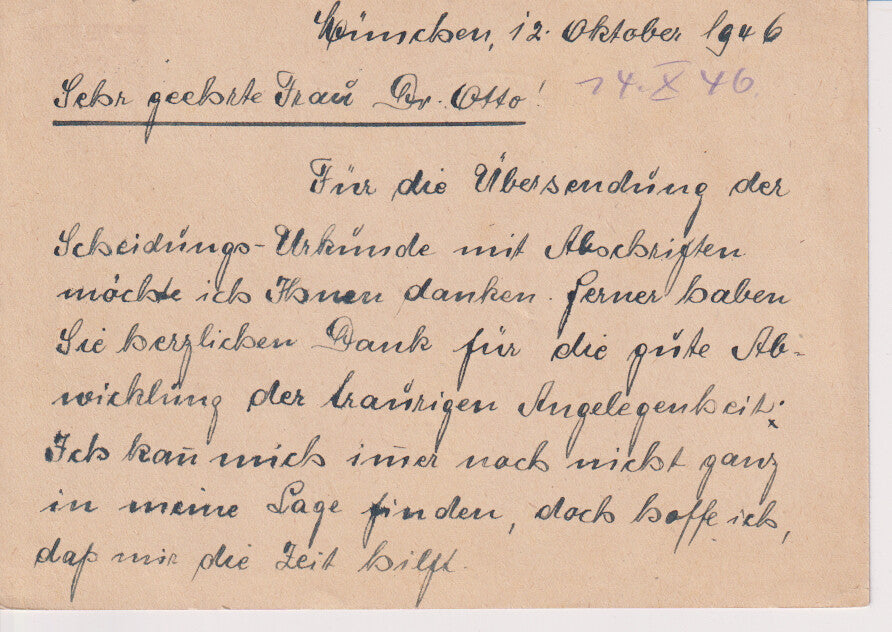 München, 12. Oktober 1946
14. X 46.
Sehr geehrte Frau Dr. Otto!
Für die Übersendung der
Scheidungs-Urkunde mit Abschriften
möchte ich Ihnen danken. Ferner haben
Sie herzlichen Dank für die gute Ab-
wicklung der traurigen Angelegenheit.
Ich kan̄ mich im̄er noch nicht ganz
in meine Lage finden, doch hoffe ich,
daß mir die Zeit hilft.